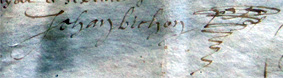 Johan bichon